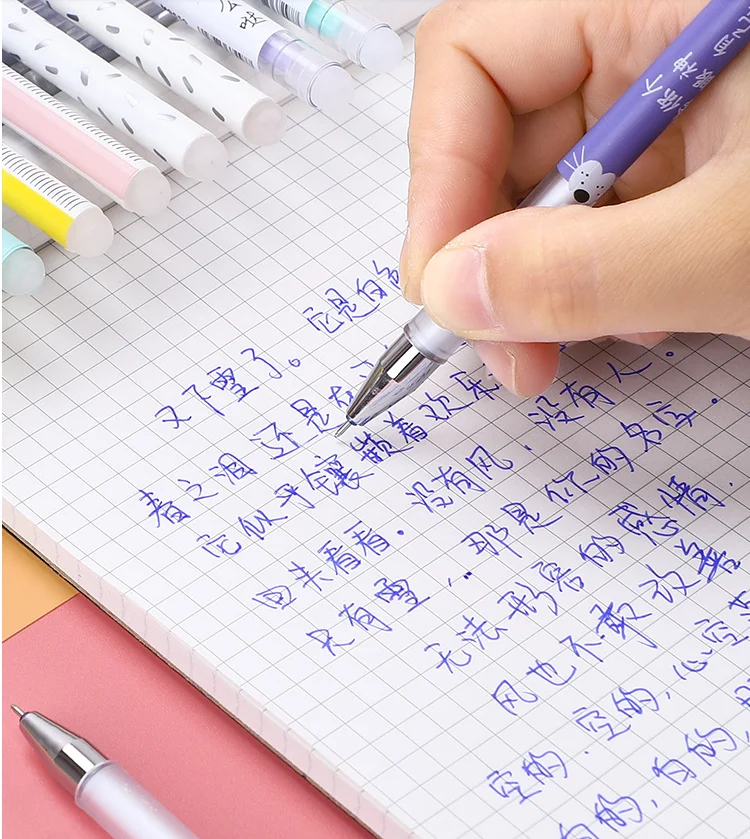 又下雪了。它是白色
春之泪 还是在
它似乎镶嵌着欢乐
回来看看。没有风，没有人。
只有雪，那是你的名字。
无法形容的感情。
风也不敢改善
空的.空的,心空
白的,白的,